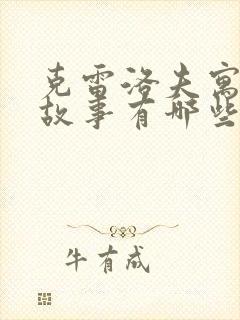 克雷洛夫寓
故事有哪些
牛有成